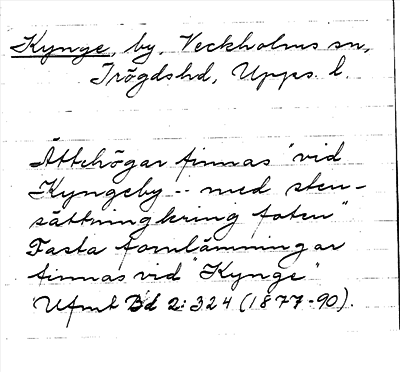 Kynge, by, Veckholms sn,
Trögdshd, Upps. l.
Ättehögar finnas "vid
Kyngeby -- med sten-
sättning kring foten"
Fasta fornlämningar
finnas vid "Kynge"
Ufmt Bd 2: 324 (1877-90).